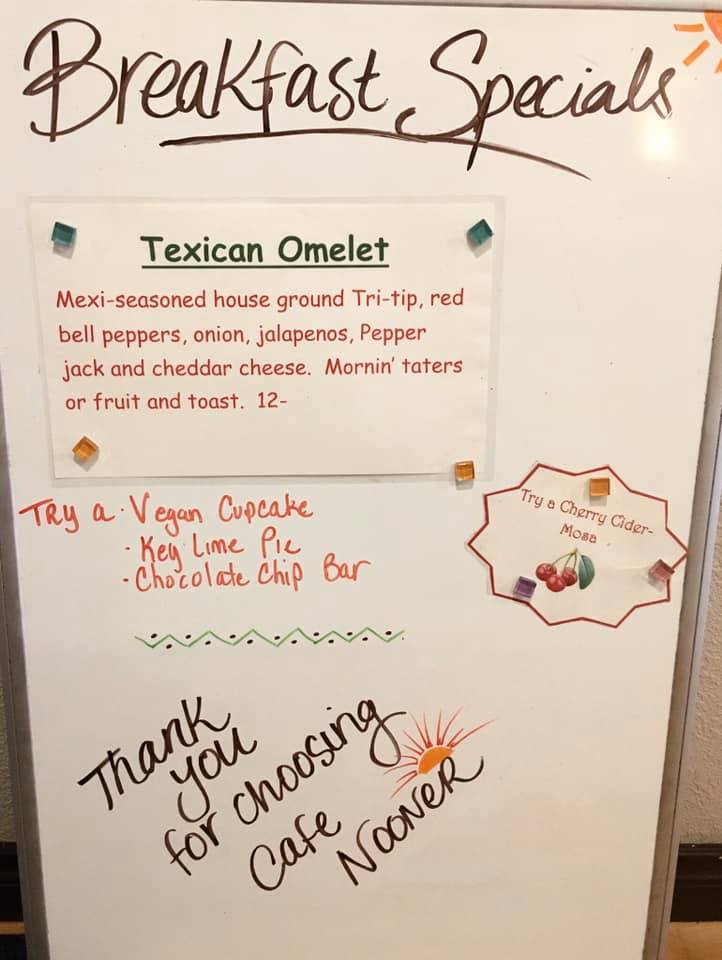 Breakfast Specials
Texican Omelet
Mexi-seasoned house ground Tri-tip, red
bell peppers, onion, jalapenos, Pepper
jack and cheddar cheese. Mornin' taters
or fruit and toast. 12-
Try a · Vegan Cupcake
· Key Lime Pie
· Chocolate Chip Bar
Try a Cherry Cider-
Mosa
Thank
you
for choosing
Cafe
Nooner